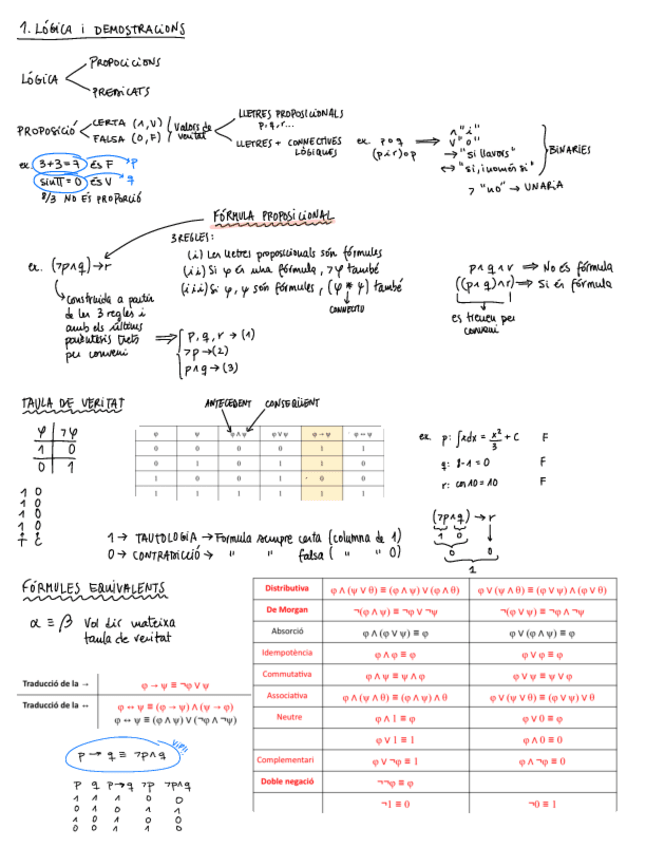 1. LÒGICA i DEMOSTRACIONS
LÒGICA
PROPOCICIONS
PREDICATS
PROPOSICIÓ
CERTA (1,V)
FALSA (0,F)
Valors de veritat
LLETRES PROPOSICIONALS
p,q,r...
LLETRES + CONNECTIVES
LÒGIQUES
ex. 3+3=7 és F → p
sinπ=0 és V → q
8/3 NO ÉS PROPORCIÓ
ex. p o q ⟹
(p i r) o p
∧ "i"
∨ "o"
→ "si llavors"
↔ "si, i només si"
BINÀRIES
¬ "no" → UNÀRIA
FÓRMULA PROPOSICIONAL
3 REGLES:
(i) Les lletres proposicionals són fórmules
(ii) Si φ és una fórmula, ¬φ també
(iii) Si φ, ψ són fórmules, (φ * ψ) també
CONNECTIU
ex. (¬p∧q)→r
construida a partir
de les 3 regles i
amb els últims
parèntesis trets
per conveni
p, q, r → (1)
¬p → (2)
p∧q → (3)
p∧q∧r ⟹ No és fórmula
((p∧q)∧r) ⟹ Sí és fórmula
es treuen per
conveni
TAULA DE VERITAT
φ ¬φ
1 0
0 1
1 0
1 0
1 0
1 0
T C
ANTECEDENT CONSEQÜENT
φ ψ φ∧ψ φ∨ψ φ→ψ φ↔ψ
0 0 0 0 1 1
0 1 0 1 1 0
1 0 0 1 0 0
1 1 1 1 1 1
1 → TAUTOLOGIA → Formula sempre certa (columna de 1)
0 → CONTRADICCIÓ → " " falsa ( " " 0)
ex. p: ∫xdx = x²/3 + C F
q: 8-1=0 F
r: cos10=10 F
(¬p∧q)→r
1 0
0 0
1
FÓRMULES EQUIVALENTS
α ≡ β Vol dir mateixa
taula de veritat
Traducció de la → φ → ψ ≡ ¬φ ∨ ψ
Traducció de la ↔ φ ↔ ψ ≡ (φ → ψ) ∧ (ψ → φ)
φ ↔ ψ ≡ (φ ∧ ψ) ∨ (¬φ ∧ ¬ψ)
p → q ≡ ¬p∧q
p q p→q ¬p ¬p∧q
1 1 1 0 0
0 1 1 1 1
1 0 0 0 0
0 0 1 1 0
Distributiva φ ∧ (ψ ∨ θ) ≡ (φ ∧ ψ) ∨ (φ ∧ θ) φ ∨ (ψ ∧ θ) ≡ (φ ∨ ψ) ∧ (φ ∨ θ)
De Morgan ¬(φ ∧ ψ) ≡ ¬φ ∨ ¬ψ ¬(φ ∨ ψ) ≡ ¬φ ∧ ¬ψ
Absorció φ ∧ (φ ∨ ψ) ≡ φ φ ∨ (φ ∧ ψ) ≡ φ
Idempotència φ ∧ φ ≡ φ φ ∨ φ ≡ φ
Commutativa φ ∧ ψ ≡ ψ ∧ φ φ ∨ ψ ≡ ψ ∨ φ
Associativa φ ∧ (ψ ∧ θ) ≡ (φ ∧ ψ) ∧ θ φ ∨ (ψ ∨ θ) ≡ (φ ∨ ψ) ∨ θ
Neutre φ ∧ 1 ≡ φ φ ∨ 0 ≡ φ
φ ∨ 1 ≡ 1 φ ∧ 0 ≡ 0
Complementari φ ∨ ¬φ ≡ 1 φ ∧ ¬φ ≡ 0
Doble negació ¬¬φ ≡ φ
¬1 ≡ 0 ¬0 ≡ 1